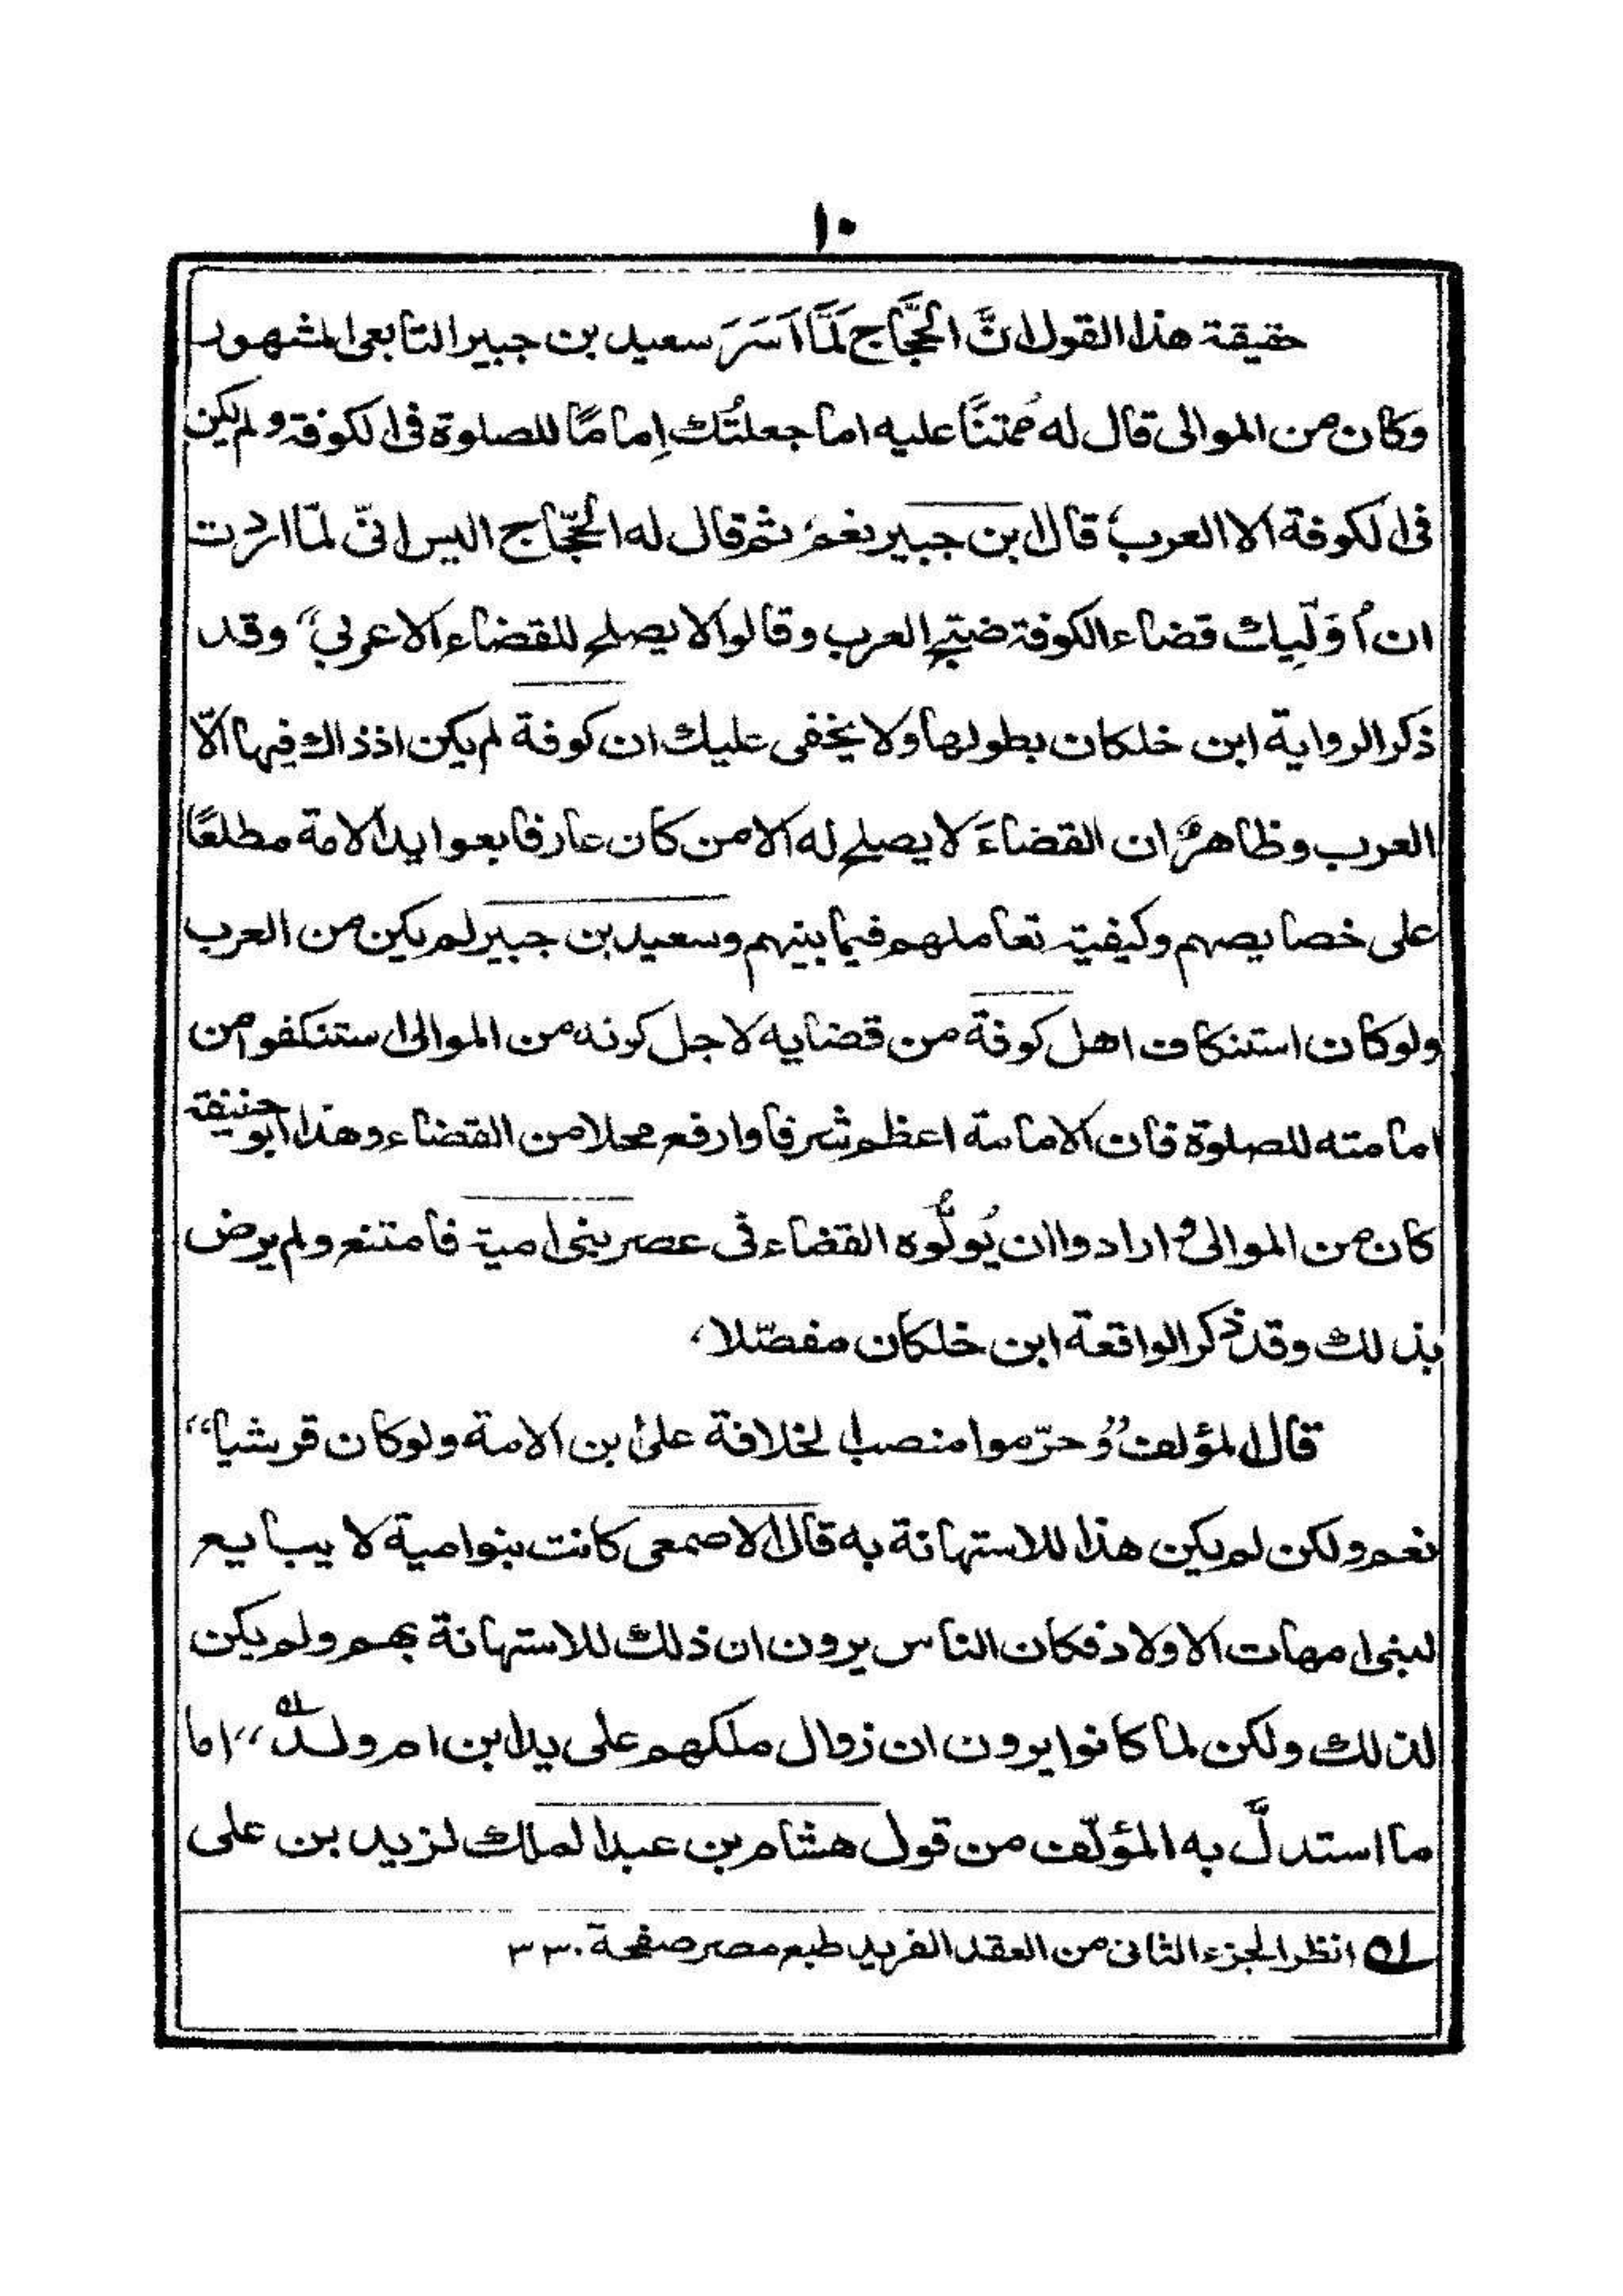 ١٠
حقيقة هذا القول انَّ الحَجَّاج لَمَّا اَسَرَ سعيد بن جبير التابعى المشهور
وكان من الموالى قال له مُمتنًّا عليه اما جعلتُك اِمامًا للصلوة فى الكوفة ولم يكن
فى الكوفة الا العرب، قال ابن جبير نعم، ثم قال له الحجّاج اليس انّى لمّا اردت
ان اُوَلّيك قضاء الكوفة ضبّح العرب وقالوا لا يصلح للقضاء الا عربيٌ“ وقد
ذكر الرواية ابن خلكان بطولها ولا يخفى عليك ان كوفة لم يكن اذ ذاك فيها الّا
العرب وظاهرٌ ان القضاءَ لا يصلح له الا من كان عارفا بعوايد الامة مطلعًا
على خصايصهم وكيفية تعاملهم فيما بينهم وسعيد بن جبير لم يكن من العرب
ولو كان استنكاف اهل كوفة من قضايه لاجل كونه من الموالى استنكفوا من
امامته للصلوة فان الامامة اعظم شرفا وارفع محلا من القضاء وهذا ابو حنيفة
كان من الموالى و ارادوا ان يُولُّوه القضاء فى عصر بنى امية فامتنع ولم يرض
بذلك وقد ذكر الواقعة ابن خلكان مفصّلا،
قال المؤلف ”وحرّموا منصب الخلافة على بن الامة ولو كان قرشيا“
نعم ولكن لم يكن هذا للاستهانة به قال الاصمعى كانت بنو امية لا يبايع
لبنى امهات الاولاد فكان الناس يرون ان ذلك للاستهانة بهم ولم يكن
لذلك ولكن لما كانوا يرون ان زوال ملكهم على يد ابن ام ولد له“ اما
ما استدلَّ به المؤلّف من قول هشام بن عبد الملك لزيد بن على
له انظر الجزء الثانى من العقد الفريد طبع مصر صفحة ٣٣٠